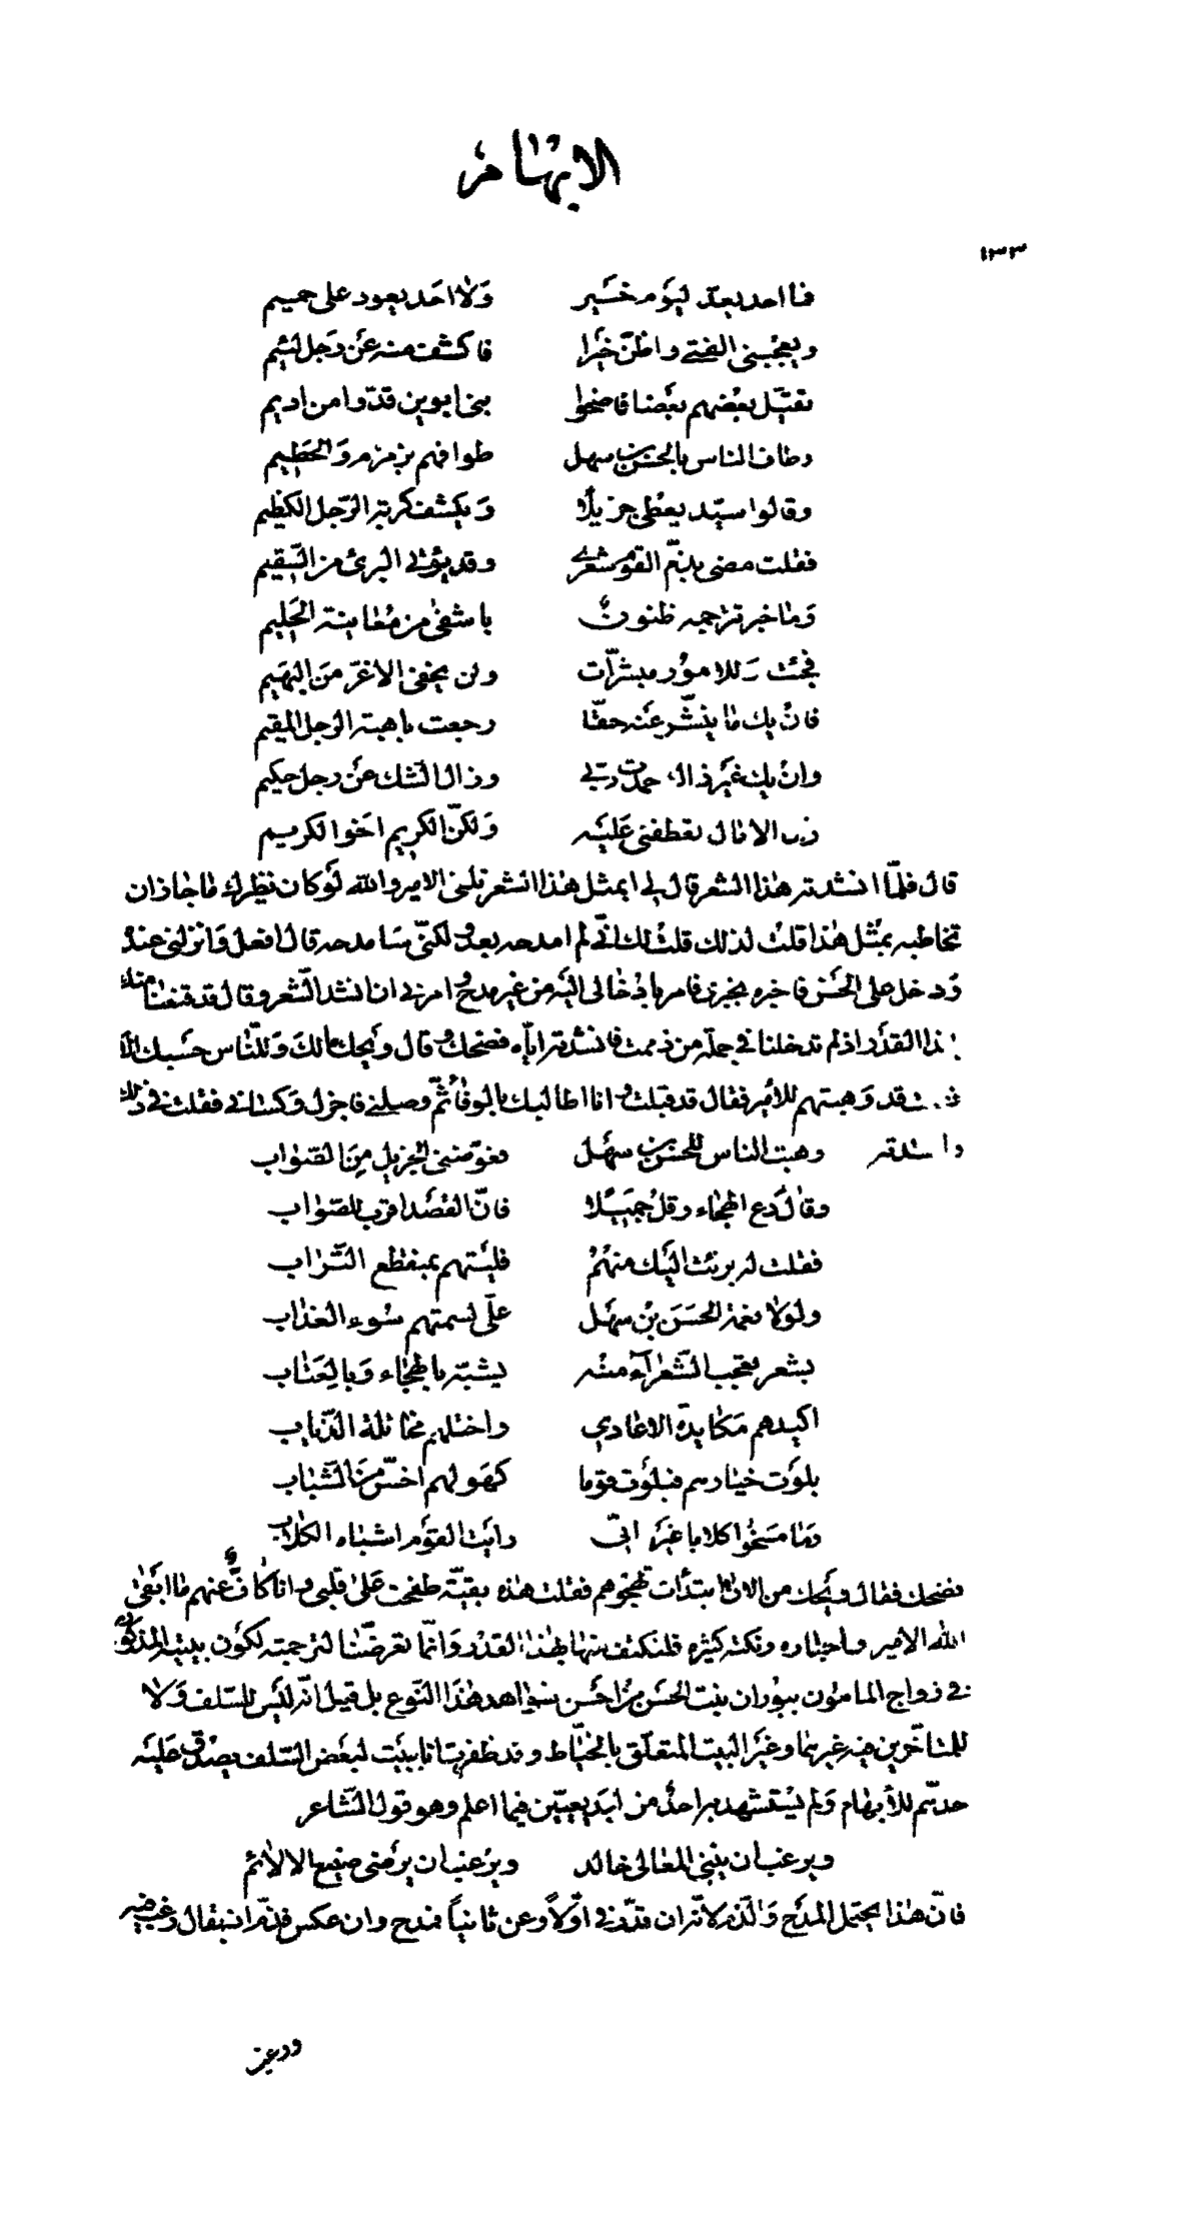 الابهام
١٣٣
فما احد يعد ليوم خير ولا احد يعود على حميم
ويعجبنى الفتى واظن خيرا فاكشف منه عن رجل لئيم
يقيّل بعضهم بعضا فاضحوا بنى ابوين قدّوا من اديم
وطاف الناس بالحسن بن سهل طوافهم بزمزم والحطيم
وقالوا سيّد يعطى جزيلا ويكشف كربة الرّجل الكظيم
فقلت مضى بذمّ القوم شعرى وقد يؤتى البرئ من السّقيم
وما خبر ترجمه ظنون باشفى من معاينة الحليم
فجئت وللامور مبشّرات ولن يخفى الاغرّ من البهيم
فان يك ما ينشّر عنه حقّا رجعت باهبة الرجل المقيم
وان يك غير ذاك حمدت ربى وزال الشك عن رجل حكيم
الامال تعطفنى عليه ولكنّ الكريم اخو الكريم
قال فلمّا انشدته هذا الشعر قال لى ابمثل هذا الشعر تلقى الامير والله لو كان نظيرك ما جاز ان
تخاطبه بمثل هذا قلت لذلك قلت لك انّى لم امدحه بعد ولكنّى سامدحه قال افعل وانزلنى عنده
ودخل على الحسن فاخبره بخبرى فامر بادخالى اليه من غير مدح وامرنى ان انشد الشعر وقال قد قنعنا منك
بهذا القدر اذ لم تدخلنا فى جملة من ذممت فانشدته ايّاه فضحك وقال ويحك مالك وللنّاس حسبك الآن
قد وهبتهم للأمير فقال قد قبلت وانا اطالبك بالوفاء ثمّ وصلنى فاجزل وكسانى فقلت فى ذلك
وانشدته وهبت الناس للحسن بن سهل فعوّضنى الجزيل من الثواب
وقال دع الهجاء وقل جميلا فانّ القصد اقرب للصّواب
فقلت له برئت اليك منهم فليتهم بمنقطع التّراب
ولولا نعمة الحسن بن سهل علىّ لسمتهم سوء العذاب
بشعر يعجب الشّعراء منه يشبّه بالهجاء وبالعتاب
اكيدهم مكايدة الاعادي واختلهم مخاتلة الذّئاب
بلوت خيارهم فبلوت قوما كهولهم اخسّ من الشّباب
وما مسخوا كلابا غير انّى رايت القوم اشباه الكلاب
فضحك فقال ويحك من الان ابتدأت تهجوهم فقلت هذه بقيّة طفحت على قلبى وانا كافّ عنهم ما ابقى
الله الامير واخباره ونكته كثيرة فلنكتف منها بهذا القدر وانّما تعرضّنا لترجمته لكون بيتيه المذكورين
فى زواج المامون ببوران بنت الحسن من احسن شواهد هذا النّوع بل قيل انّه ليس للسّلف ولا
للمتاخّرين فيه غيرهما وغير البيت المتعلّق بالخيّاط وقد ظفرت انا ببيت لبعض السّلف يصدق عليه
حدّهم للأبهام ولم يستشهد به احد من البديعيّين فيما اعلم وهو قول الشّاعر
ويرغب ان يبنى المعالى خالد ويرغب ان يرضى صنيع الالائم
فانّ هذا يحتمل المدح والذّم لانّه ان قدّر فى اوّلاً وعن ثانياً فمدح وان عكس فذمّ اذ يقال رغب فيه
ورغب